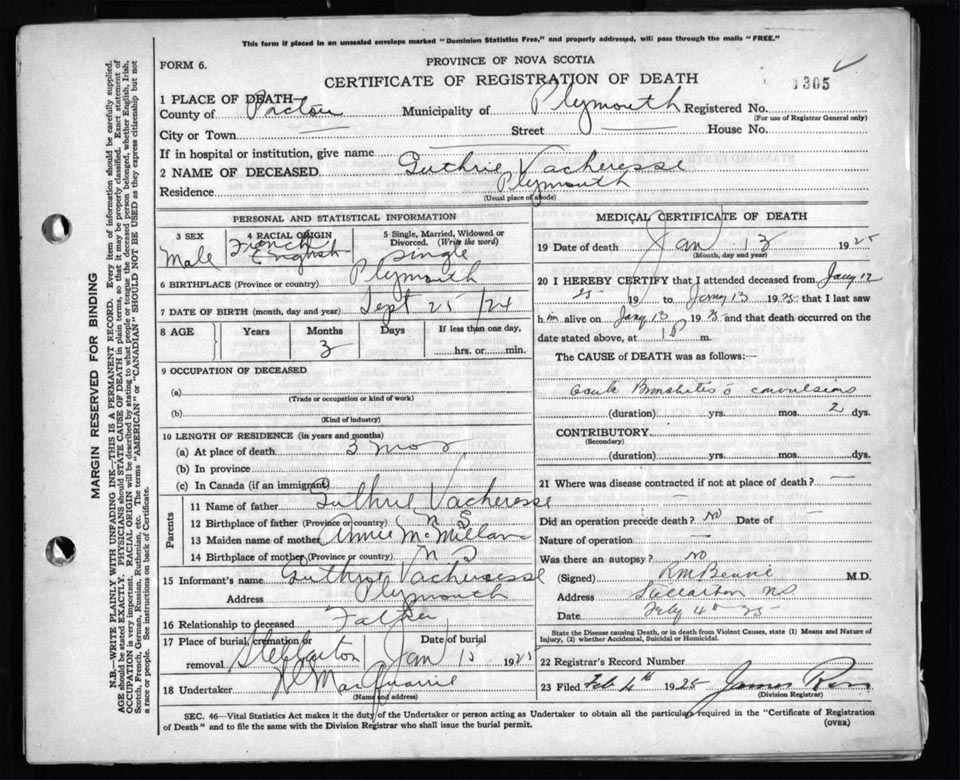 This form if placed in an unsealed envelope marked "Dominion Statistics Free," and properly addressed, will pass through the mails "FREE."
FORM 6.
PROVINCE OF NOVA SCOTIA
CERTIFICATE OF REGISTRATION OF DEATH
1305
1 PLACE OF DEATH
County of Pictou Municipality of Plymouth Registered No.
(For use of Registrar General only)
City or Town — Street — House No.
If in hospital or institution, give name
2 NAME OF DECEASED Guthrie Vacheresse
Residence Plymouth
(Usual place of abode)
PERSONAL AND STATISTICAL INFORMATION
3 SEX Male
4 RACIAL ORIGIN French English
5 Single, Married, Widowed or Divorced. (Write the word) Single
6 BIRTHPLACE (Province or country) Plymouth
7 DATE OF BIRTH (month, day and year) Sept 25 /24
8 AGE Years Months Days If less than one day,
3 hrs. or min.
9 OCCUPATION OF DECEASED
(a)
(Trade or occupation or kind of work)
(b)
(Kind of industry)
10 LENGTH OF RESIDENCE (in years and months)
(a) At place of death 3 mos
(b) In province
(c) In Canada (if an immigrant)
Parents
11 Name of father Guthrie Vacheresse
12 Birthplace of father (Province or country) N S
13 Maiden name of mother Annie McMillan
14 Birthplace of mother (Province or country) N S
15 Informant's name Guthrie Vacheresse
Address Plymouth
16 Relationship to deceased Father
17 Place of burial, cremation or removal. Stellarton Date of burial Jan 15 1925
18 Undertaker
(Name and address)
MEDICAL CERTIFICATE OF DEATH
19 Date of death Jan 13 1925
(Month, day and year)
20 I HEREBY CERTIFY that I attended deceased from Jany 12
25 19 to Jany 13 1925 that I last saw
him alive on Jany 13 1925 and that death occurred on the
date stated above, at m.
The CAUSE of DEATH was as follows:—
Bronchitis convulsions
(duration) yrs. mos. 2 dys.
CONTRIBUTORY
(Secondary)
(duration) yrs. mos. dys.
21 Where was disease contracted if not at place of death? —
Did an operation precede death? No Date of —
Nature of operation —
Was there an autopsy? No
(Signed) M.D.
Address Stellarton NS
Date Feby 4th 25
State the Disease causing Death, or in death from Violent Causes, state (1) Means and Nature of
Injury, (2) whether Accidental, Suicidal or Homicidal.
22 Registrar's Record Number
23 Filed Feb 4th 1925 James Ross
(Division Registrar)
SEC. 46—Vital Statistics Act makes it the duty of the Undertaker or person acting as Undertaker to obtain all the particulars required in the "Certificate of Registration
of Death" and to file the same with the Division Registrar who shall issue the burial permit.
(OVER)
MARGIN RESERVED FOR BINDING
N.B.—WRITE PLAINLY WITH UNFADING INK—THIS IS A PERMANENT RECORD. Every item of information should be carefully supplied.
AGE should be stated EXACTLY. PHYSICIANS should STATE CAUSE OF DEATH in plain terms, so that it may be properly classified. Exact statement of
OCCUPATION is very important. RACIAL ORIGIN will be described by stating to what people or tongue the deceased person belonged, whether English, Irish,
Scotch, French, German, Russian, Ruthenian, etc. The terms "AMERICAN" or "CANADIAN" SHOULD NOT BE USED as they express citizenship but not
a race or people. See instructions on back of Certificate.